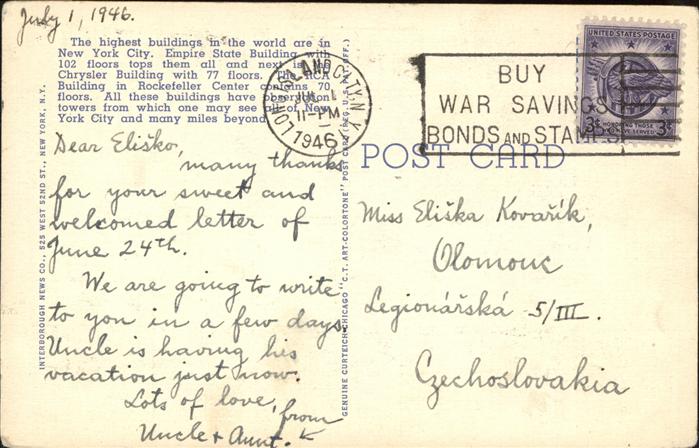 July 1, 1946.
The highest buildings in the world are in
New York City. Empire State Building with
102 floors tops them all and next is the
Chrysler Building with 77 floors. The RCA
Building in Rockefeller Center contains 70
floors. All these buildings have observation
towers from which one may see all of New
York City and many miles beyond.
LONG ISLAND CITY, N.Y.
JUL 1
11-PM
1946
BUY
WAR SAVINGS
BONDS AND STAMPS
UNITED STATES POSTAGE
HONORING THOSE
WHO HAVE SERVED
3¢ 3¢
POST CARD
Dear Eliško,
many thanks
for your sweet and
welcomed letter of
June 24th.
We are going to write
to you in a few days.
Uncle is having his
vacation just now.
Lots of love,
from
Uncle & Aunt.
Miss Eliška Kovařík,
Olomouc
Legionářská 5/III.
Czechoslovakia
INTERBOROUGH NEWS CO., 525 WEST 52ND ST., NEW YORK, N.Y.
GENUINE CURTEICH-CHICAGO "C.T. ART-COLORTONE" POST CARD (REG. U.S. PAT. OFF.)